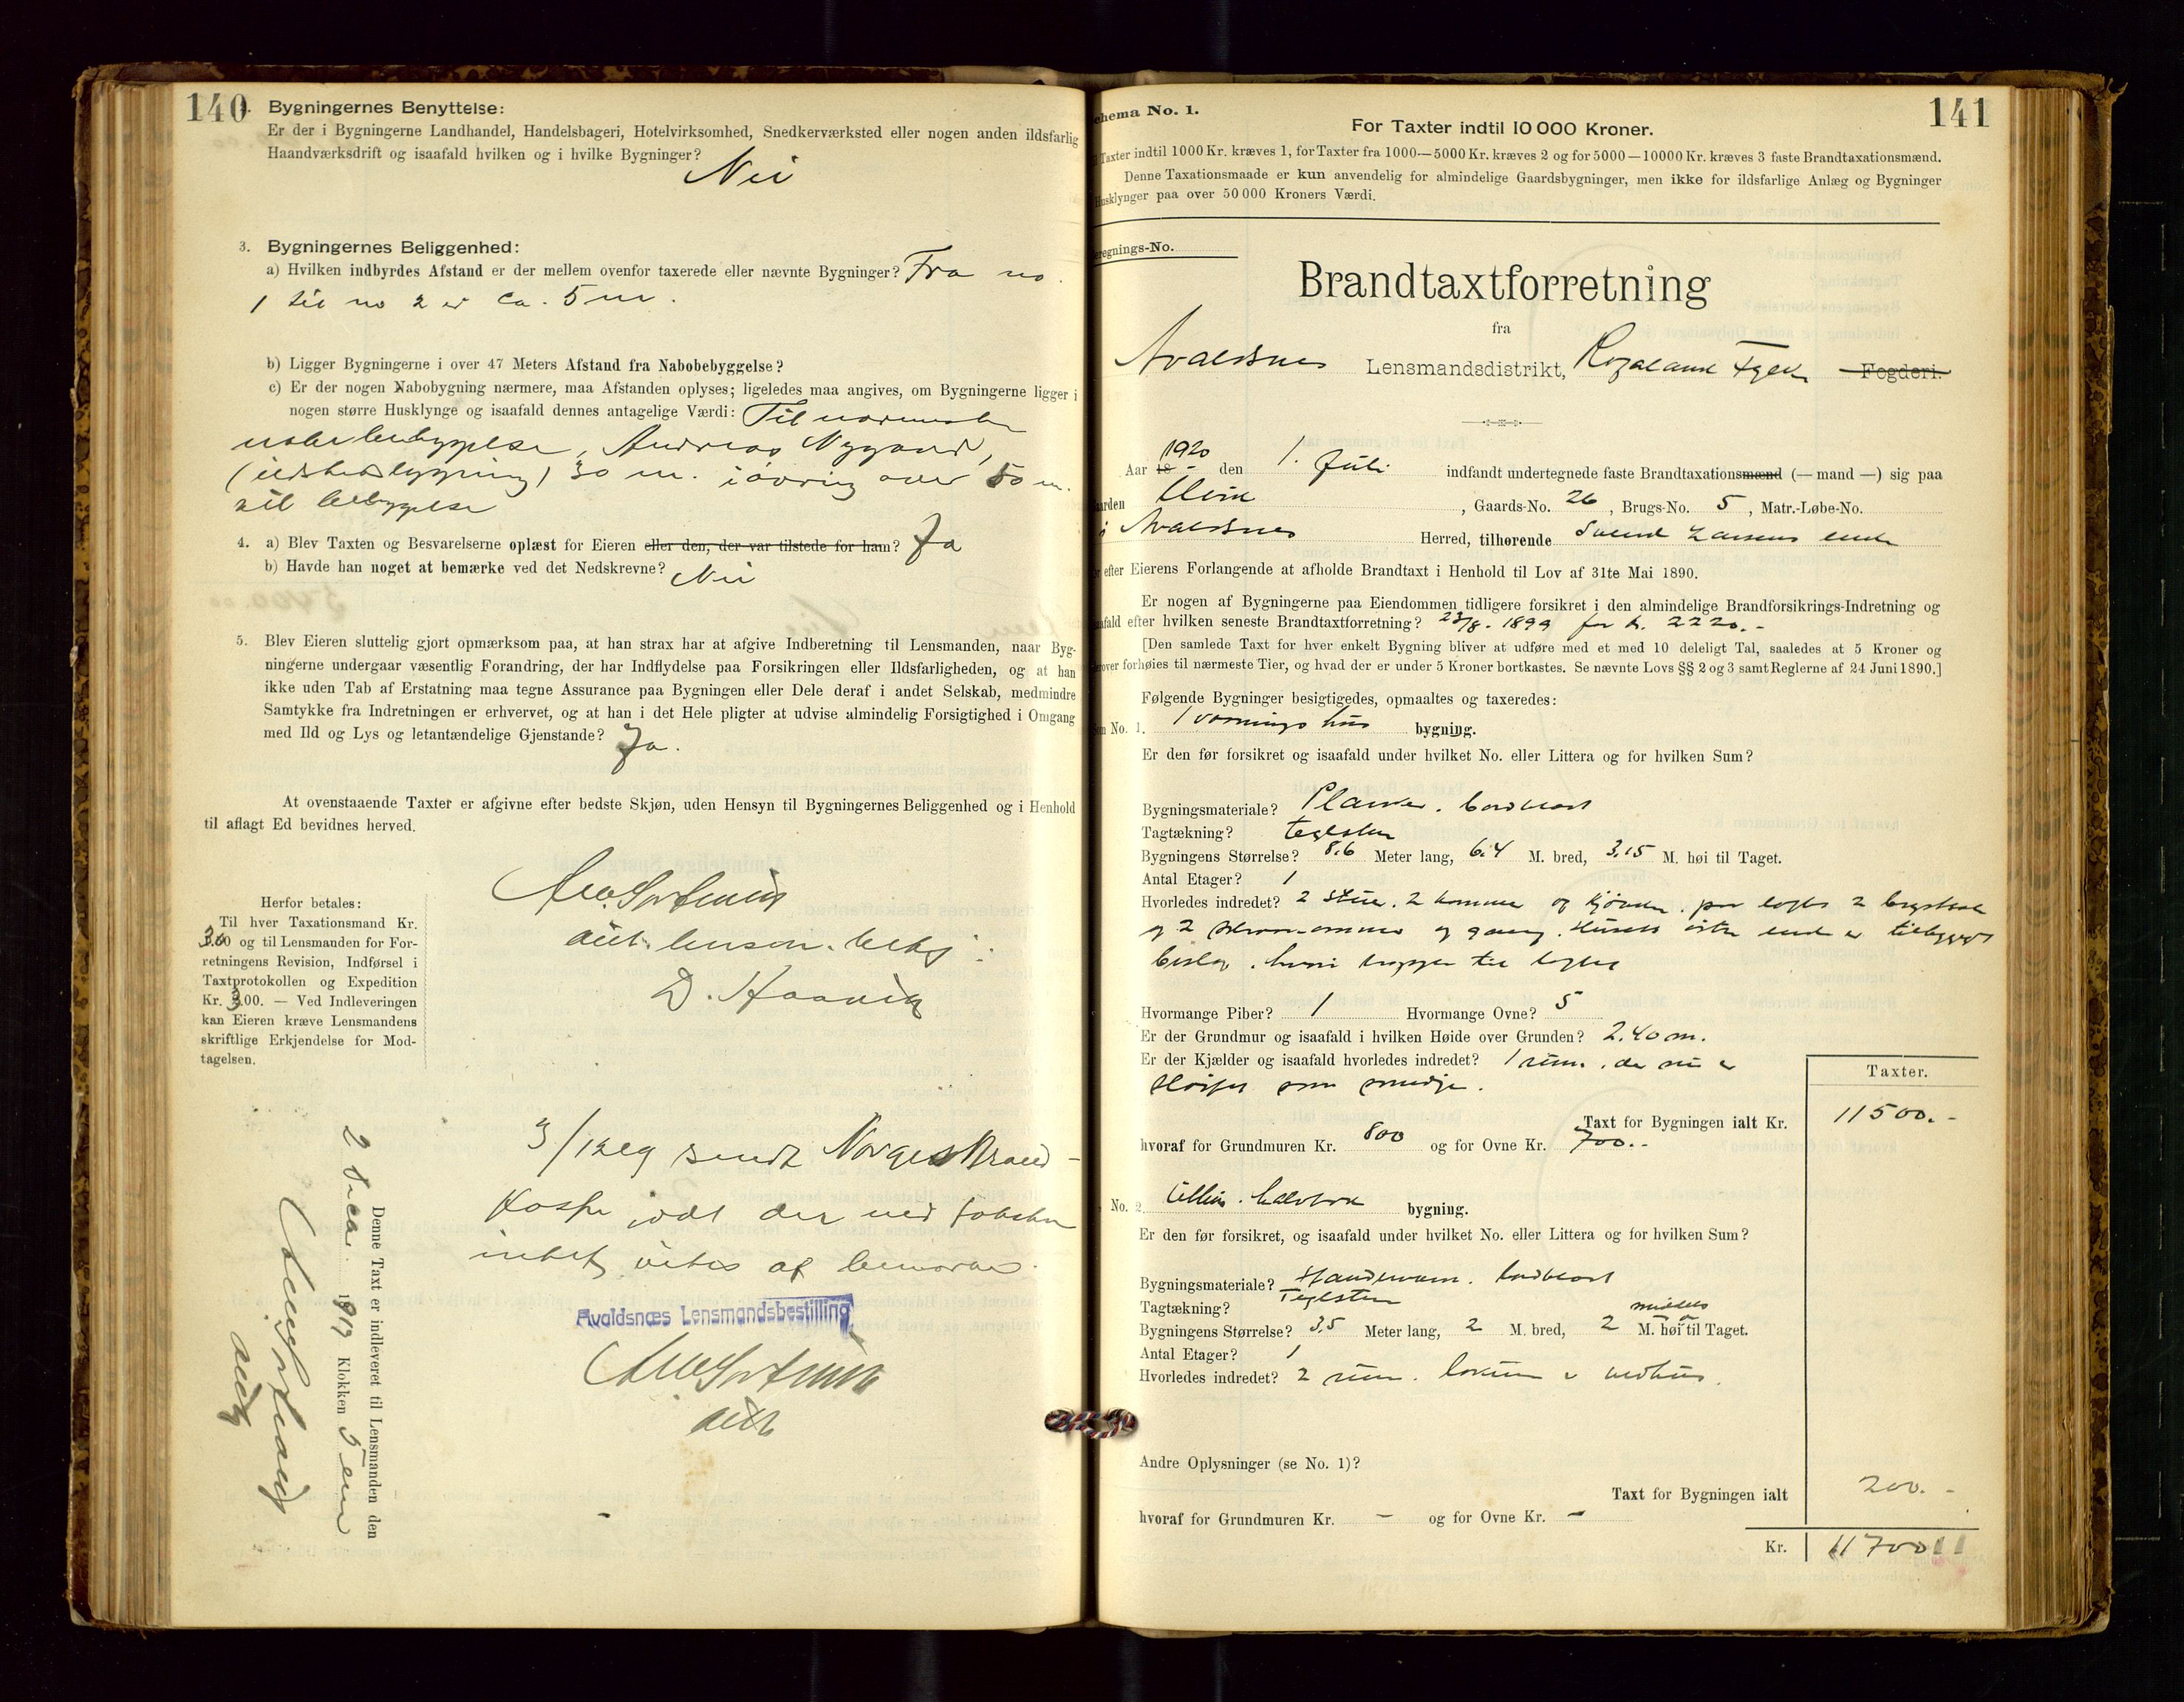 140
2. Bygningernes Benyttelse:
Er der i Bygningerne Landhandel, Handelsbageri, Hotelvirksomhed, Snedkerværksted eller nogen anden ildsfarlig
Haandværksdrift og isaafald hvilken og i hvilke Bygninger? Nei
3. Bygningernes Beliggenhed:
a) Hvilken indbyrdes Afstand er der mellem ovenfor taxerede eller nævnte Bygninger? Fra no.
1 til no 2 er ca. 5 m.
b) Ligger Bygningerne i over 47 Meters Afstand fra Nabobebyggelse?
c) Er der nogen Nabobygning nærmere, maa Afstanden oplyses; ligeledes maa angives, om Bygningerne ligger i
nogen større Husklynge og isaafald dennes antagelige Værdi: Til nærmeste
nabobebyggelse, Andreas Nygaard,
(ildstedsbygning) 30 m. i øvrig over 50 m.
til bebyggelse
4. a) Blev Taxten og Besvarelserne oplæst for Eieren eller den, der var tilstede for ham? Ja
b) Havde han noget at bemærke ved det Nedskrevne? Nei
5. Blev Eieren sluttelig gjort opmærksom paa, at han strax har at afgive Indberetning til Lensmanden, naar Byg-
ningerne undergaar væsentlig Forandring, der har Indflydelse paa Forsikringen eller Ildsfarligheden, og at han
ikke uden Tab af Erstatning maa tegne Assurance paa Bygningen eller Dele deraf i andet Selskab, medmindre
Samtykke fra Indretningen er erhvervet, og at han i det Hele pligter at udvise almindelig Forsigtighed i Omgang
med Ild og Lys og letantændelige Gjenstande? Ja.
At ovenstaaende Taxter er afgivne efter bedste Skjøn, uden Hensyn til Bygningernes Beliggenhed og i Henhold
til aflagt Ed bevidnes herved.
D. Haavik
Herfor betales:
Til hver Taxationsmand Kr.
3.00 og til Lensmanden for For-
retningens Revision, Indførsel i
Taxtprotokollen og Expedition
Kr. 3.00. — Ved Indleveringen
kan Eieren kræve Lensmandens
skriftlige Erkjendelse for Mod-
tagelsen.
3/12 19 sendt Norges Brand-
kasse idet der ved takster
intet vites at bemærke.
Avaldsnæs Lensmandsbestilling
Denne Taxt er indleveret til Lensmanden den
2 1919 Klokken 5 em
141
Schema No. 1.
For Taxter indtil 10 000 Kroner.
Taxter indtil 1000 Kr. kræves 1, for Taxter fra 1000—5000 Kr. kræves 2 og for 5000—10000 Kr. kræves 3 faste Brandtaxationsmænd.
Denne Taxationsmaade er kun anvendelig for almindelige Gaardsbygninger, men ikke for ildsfarlige Anlæg og Bygninger
Husklynger paa over 50 000 Kroners Værdi.
eregnings-No.
Brandtaxtforretning
fra
Avaldsnes Lensmandsdistrikt, Rogaland Fylke Fogderi.
Aar 1920 den 1. Juli indfandt undertegnede faste Brandtaxationsmænd (— mand —) sig paa
aarden , Gaards-No. 26, Brugs-No. 5, Matr.-Løbe-No.
i Avaldsnes Herred, tilhørende Svend Larsens enke
efter Eierens Forlangende at afholde Brandtaxt i Henhold til Lov af 31te Mai 1890.
Er nogen af Bygningerne paa Eiendommen tidligere forsikret i den almindelige Brandforsikrings-Indretning og
isaafald efter hvilken seneste Brandtaxtforretning? 23/8. 1899 for kr. 2220.-
[Den samlede Taxt for hver enkelt Bygning bliver at udføre med et med 10 deleligt Tal, saaledes at 5 Kroner og
derover forhøies til nærmeste Tier, og hvad der er under 5 Kroner bortkastes. Se nævnte Lovs §§ 2 og 3 samt Reglerne af 24 Juni 1890.]
Følgende Bygninger besigtigedes, opmaaltes og taxeredes:
Som No. 1. Vaanings hus bygning.
Er den før forsikret og isaafald under hvilket No. eller Littera og for hvilken Sum?
Bygningsmateriale? Planker. bordklædt
Tagtækning? teglsten
Bygningens Størrelse? 8.6 Meter lang, 6.4 M. bred, 3.15 M. høi til Taget.
Antal Etager? 1
Hvorledes indredet? 2 stuer. 2 kammer og kjøkken. paa loftet 2
og 2 og gang. Husets østre ende er tilbygget
bislag. hvori trapper til loftet
Hvormange Piber? 1 Hvormange Ovne? 5
Er der Grundmur og isaafald i hvilken Høide over Grunden? 2.40 m.
Er der Kjælder og isaafald hvorledes indredet? 1 rum. der nu er
sløifet som smedje.
Taxter.
Taxt for Bygningen ialt Kr. 11500.-
hvoraf for Grundmuren Kr. 800 og for Ovne Kr. 700.-
No. 2 bygning.
Er den før forsikret, og isaafald under hvilket No. eller Littera og for hvilken Sum?
Bygningsmateriale? bordklædt
Tagtækning? Teglsten
Bygningens Størrelse? 3,5 Meter lang, 2 M. bred, 2 M. middels høi til Taget.
Antal Etager? 1
Hvorledes indredet? 2 rum. lokum & vedhus.
Andre Oplysninger (se No. 1)?
Taxt for Bygningen ialt 200.-
hvoraf for Grundmuren Kr. - og for Ovne Kr. -
Kr. 11700